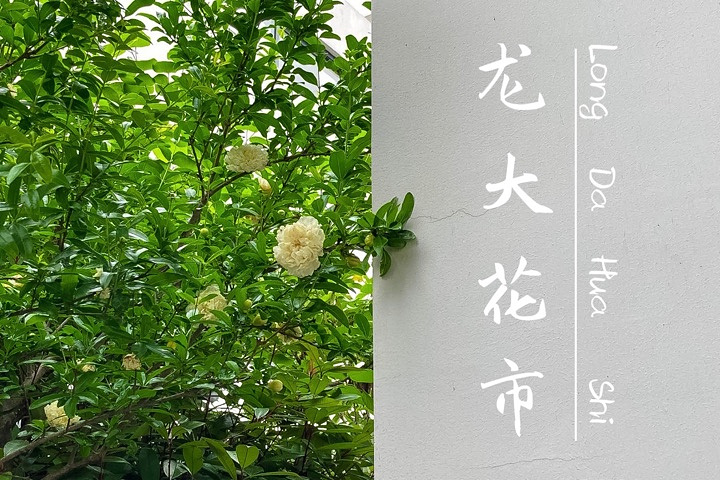 龙大花市
Long Da Hua Shi